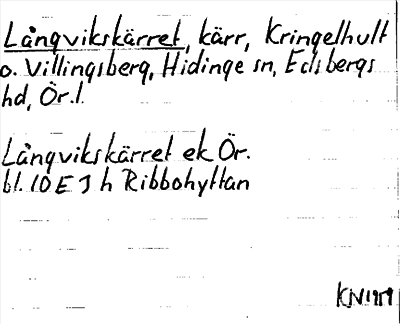 Långvikskärret, kärr, Kringelhult
o. Villingsberg, Hidinge sn, Edsbergs
hd, Ör.l.
Långvikskärret ek Ör.
bl. 10E3h Ribbohyttan